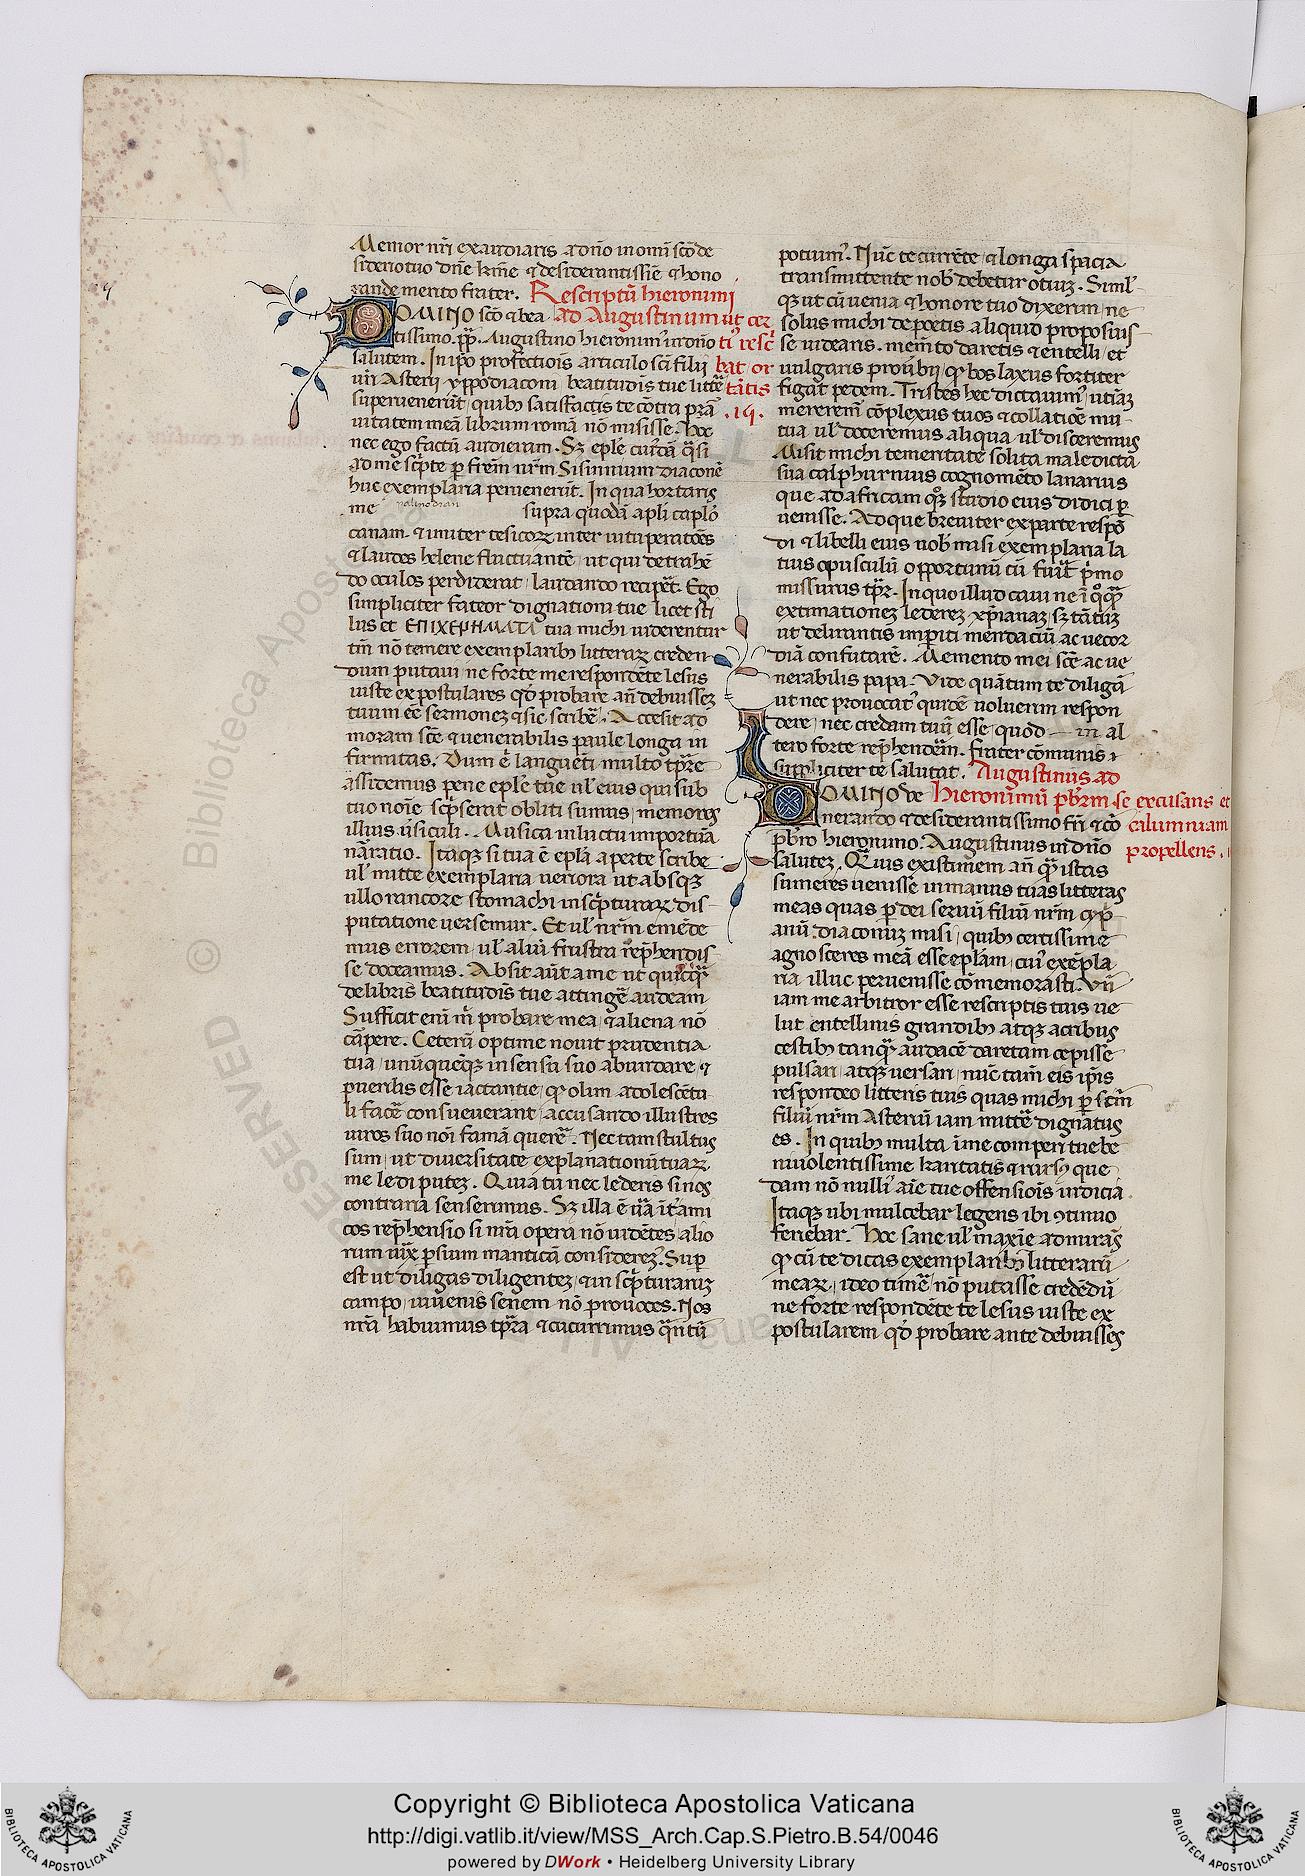 Memor nr̄i exaudiaris a dn̄o in om̄i sc̄o de
siderio tuo dn̄e kr̄me ⁊ desiderantissīe ⁊ hono
rande merito frater. Rescriptū hieronimi
DOMINO sc̄o ⁊ bea ad Augustinum ut cer
tissimo .pp. Augustino hieronim᾽ in dn̄o ti᾽ resc̄
salutem. In ip̄o profectiōis articulo sc̄i filii bat or
nr̄i Asterii yppodiaconi beatitudīs tue litt̄e tātis
supervenerūt, quib; satisfactis te cōtra prā .ıq.
vitatem meā librum romā nō misisse. Hoc
nec ego factū audieram. Sz ep̄le cui᾽dā q̄si
ad me sc̄pte p̄ fr̄em nr̄m Sisinnium diaconē
huc exemplaria pervenerūt. In qua hortaris
me palinodian supra quodā apl̄i caplō
canam. ⁊ imiter tesicoꝝ inter vituperatōēs
⁊ laudes helene fluctuantē, ut qui detrahē
do oculos perdiderat, laudando recip̄et. Ego
simpliciter fateor dignationi tue licet sti
lus et ΕΠΙΧΕΡΗΜΑΤΑ tua michi viderentur
tn̄ nō temere exemplarib; litteraꝝ creden
dum putavi ne forte me respondēte lesus
iuste expostulares qd̄ probare an̄ debuisses
tuum eē sermonez ⁊ sic scribē. Accesit ad
moram sc̄e ⁊ venerabilis paule longa in
firmitas. Dum ē languēti multo tp̄re
assidemus pene ep̄le tue ul᾽ eius qui sub
tuo noīe sc̄pserat obliti sumus, memores
illius v̄siculi. Musica in luctu importūa
nārratio. Itaqꝫ si tua ē ep̄la aperte scribe
ul᾽ mitte exemplaria veriora ut absqꝫ
ullo rancore stomachi in sc̄pturaꝝ dis
putatione versemur. Et ul᾽ nr̄m emēde
mus errorem, ul᾽ aliū frustra rep̄hendis
se doceamus. Absit aūt a me ut quicq̄
de libris beatitudīs tue attingē audeam
Sufficit enī m̄ probare mea, ⁊ aliena nō
cāpere. Ceterū optime novit prudentia
tua, unūquēqꝫ in sensu suo abundare, ⁊
puerilis esse iactantie, qd̄ olim adolescētu
li facē consueverant, accusando illustres
viros suo nōi famā querē. Nec tam stultus
sum, ut diversitate explanationū tuaꝝ
me ledi putez. Quia tu nec lederis si nos
contraria senserimus. Sz illa ē v̄a īt᾽ ami
cos rep̄hensio si nr̄a opera nō vidētes, alio
rum iux̄ p̄sium manticā considerez. Sup
est ut diligas diligentez, ⁊ in sc̄pturarūz
campo, iuvenis senem nō provoces. Nos
nr̄a habuimus tp̄ra ⁊ cucurrimus q̄ntū
potuim᾽. Nūc te currēte, ⁊ longa spacia
transmittente nob᾽ debetur otiuz. Simul᾽
qꝫ ut cū venia ⁊ honore tuo dixerim, ne
solus michi de poetis aliquid proposuis
se videaris. memēto daretis ⁊ entelli, et
vulgaris prov̄bii, qd̄ bos laxus fortiter
figat pedem. Tristes hec dictavim᾽, utīaz
mererem᾽ cōplexus tuos ⁊ collatiōe mu
tua ul᾽ doceremus aliqua ul᾽ disceremus
Misit michi temeritate solita maledicta
sua calphurnius cognomēto lanarius
que ad africam qꝫ studio eius didici p̄
venisse. Ad que breviter ex parte respō
di ⁊ libelli eius nob᾽ misi exemplaria la
tius opusculū opportunū cū fuīt p̄mo
missurus tp̄r. In quo illud cavi ne ī qq̄
extimationez lederez xp̄ianaz, sz tātūz
ut delirantis imp̄iti mendaciū ac vecor
diā confutarē. Memento mei sc̄e ac ve
nerabilis papa. Vide quātum te diligā
ut nec provocat᾽ quidē voluerim respon
dere, nec credam tuū esse, quod — in al
tero forte rep̄hendēm. frater cōmunis ⁊
simpliciter te salutat. Augustinus ad
DOMINO de Hieronimū pb̄rm se excusans et
nerando ⁊ desiderantissimo frī ⁊ cō calumniam
pb̄ro hieronimo. Augustinus in dn̄o propellens.
salutez. Qͣvis existimem an̄ q̄ istas
sumeres venisse in manus tuas litteras
meas quas p̄ dei servū filiū nr̄m cyp̄
anū diaconuz misi, quib; certissime
agnosceres meā esse ep̄lam, cui᾽ exēpla
ria illuc pervenisse cōmemorasti. Vn̄
iam me arbitror esse rescriptis tuis ve
lut entellinis grandib; atqꝫ acribus
cestib; tanq̄ audacē daretam cepisse
pulsari, atqꝫ versari, nūc tam̄ eis ip̄is
respondeo litteris tuis quas michi p̄ sc̄m
filiū nr̄m Asteriū iam mittē dignatus
es. In quib; multa ī me comperi tue be
nivolentissime karitatis ⁊ rurs; que
dam nō nulli᾽ aīe tue offensiōis indicia.
Itaqꝫ ubi mulcebar legens ibi ꝯtinuo
feriebar. Hoc sane ul᾽ maxīe admirās
qd̄ cū te dicas exemplarib; litterarū
meaꝝ, ideo timē, nō putasse credēdū
ne forte respondēte te lesus iuste ex
postularem qd̄ probare ante debuisses
Copyright © Biblioteca Apostolica Vaticana
http://digi.vatlib.it/view/MSS_Arch.Cap.S.Pietro.B.54/0046
powered by DWork • Heidelberg University Library